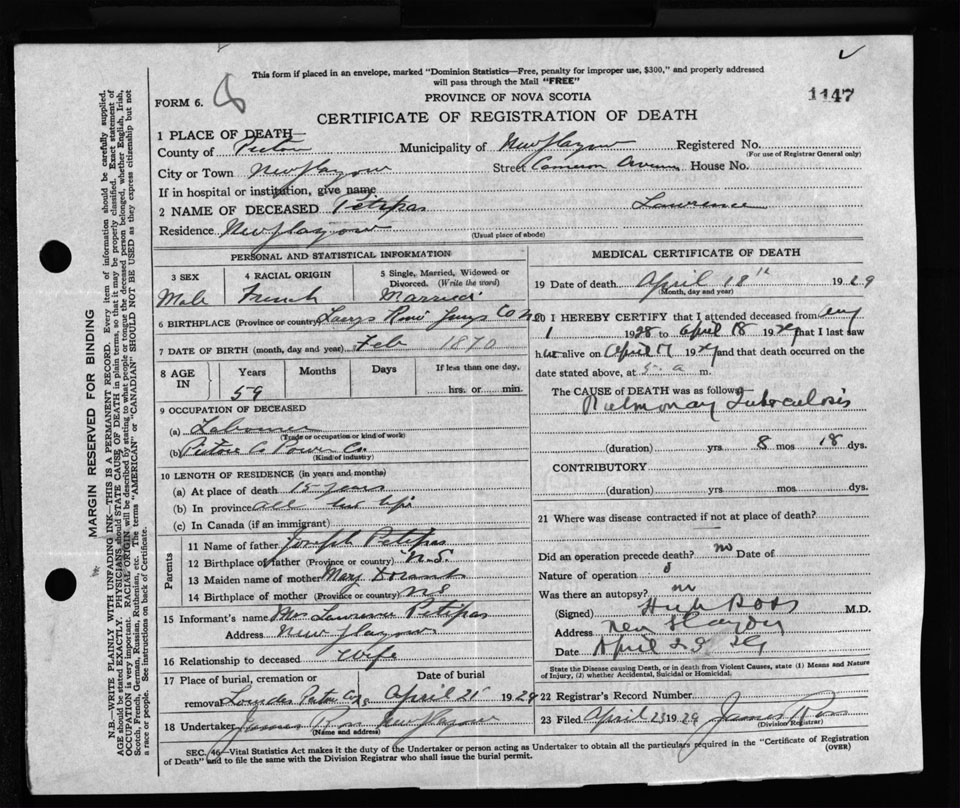 This form if placed in an envelope, marked "Dominion Statistics—Free, penalty for improper use, $300," and properly addressed
will pass through the Mail "FREE"
FORM 6.
PROVINCE OF NOVA SCOTIA
1147
CERTIFICATE OF REGISTRATION OF DEATH
1 PLACE OF DEATH—
County of Pictou Municipality of New Glasgow Registered No.
(For use of Registrar General only)
City or Town New Glasgow Street Cameron Avenue House No.
If in hospital or institution, give name
2 NAME OF DECEASED Petipas Lawrence
Residence New Glasgow
(Usual place of abode)
PERSONAL AND STATISTICAL INFORMATION
3 SEX 4 RACIAL ORIGIN 5 Single, Married, Widowed or Divorced. (Write the word)
Male French Married
6 BIRTHPLACE (Province or country)
7 DATE OF BIRTH (month, day and year) Feb 1870
8 AGE IN Years Months Days If less than one day,
59 hrs. or min.
9 OCCUPATION OF DECEASED
(a) Labourer
(Trade or occupation or kind of work)
(b) Pictou Co Power Co.
(Kind of industry)
10 LENGTH OF RESIDENCE (in years and months)
(a) At place of death 15 years
(b) In province all his life
(c) In Canada (if an immigrant)
Parents
11 Name of father Joseph Petipas
12 Birthplace of father (Province or country) N.S.
13 Maiden name of mother Mary
14 Birthplace of mother (Province or country) NS
15 Informant's name Mrs Lawrence Petipas
Address New Glasgow
16 Relationship to deceased Wife
17 Place of burial, cremation or Date of burial
removal Lourdes Pictou Co April 21 1929
18 Undertaker James Ross New Glasgow
(Name and address)
MEDICAL CERTIFICATE OF DEATH
19 Date of death April 18th 1929
(Month, day and year)
20 I HEREBY CERTIFY that I attended deceased from Aug
1 1928 to April 18 1929 that I last saw
him alive on April 17 1929 and that death occurred on
date stated above, at 5 a m.
The CAUSE OF DEATH was as follows:
Pulmonary Tuberculosis
(duration) yrs 8 mos 18 dys.
CONTRIBUTORY
(duration) yrs mos dys.
21 Where was disease contracted if not at place of death?
Did an operation precede death? no Date of
Nature of operation
Was there an autopsy? no
(Signed) Hugh Ross M.D.
Address New Glasgow
Date April 29
State the Disease causing Death, or in death from Violent Causes, state (1) Means and Nature
of Injury, (2) whether Accidental, Suicidal or Homicidal.
22 Registrar's Record Number
23 Filed April 23 1929 James Ross
(Division Registrar)
SEC. 46—Vital Statistics Act makes it the duty of the Undertaker or person acting as Undertaker to obtain all the particulars required in the "Certificate of Registration
of Death" and to file the same with the Division Registrar who shall issue the burial permit.
(OVER)
MARGIN RESERVED FOR BINDING
N.B.—WRITE PLAINLY WITH UNFADING INK—THIS IS A PERMANENT RECORD. Every item of information should be carefully supplied.
AGE should be stated EXACTLY. PHYSICIANS should STATE CAUSE OF DEATH in plain terms, so that it may be properly classified. Exact statement of
OCCUPATION is very important. RACIAL ORIGIN will be described by stating to what people or tongue the deceased person belonged, whether English, Irish,
Scotch, French, German, Russian, Ruthenian, etc. The terms "AMERICAN" or "CANADIAN" SHOULD NOT BE USED as they express citizenship but not
a race or people. See instructions on back of Certificate.